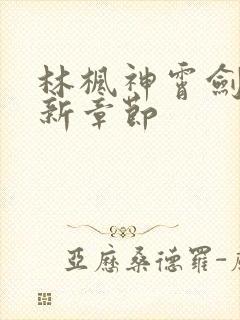 林楓神霄劍
新章節
亞歷桑德羅-